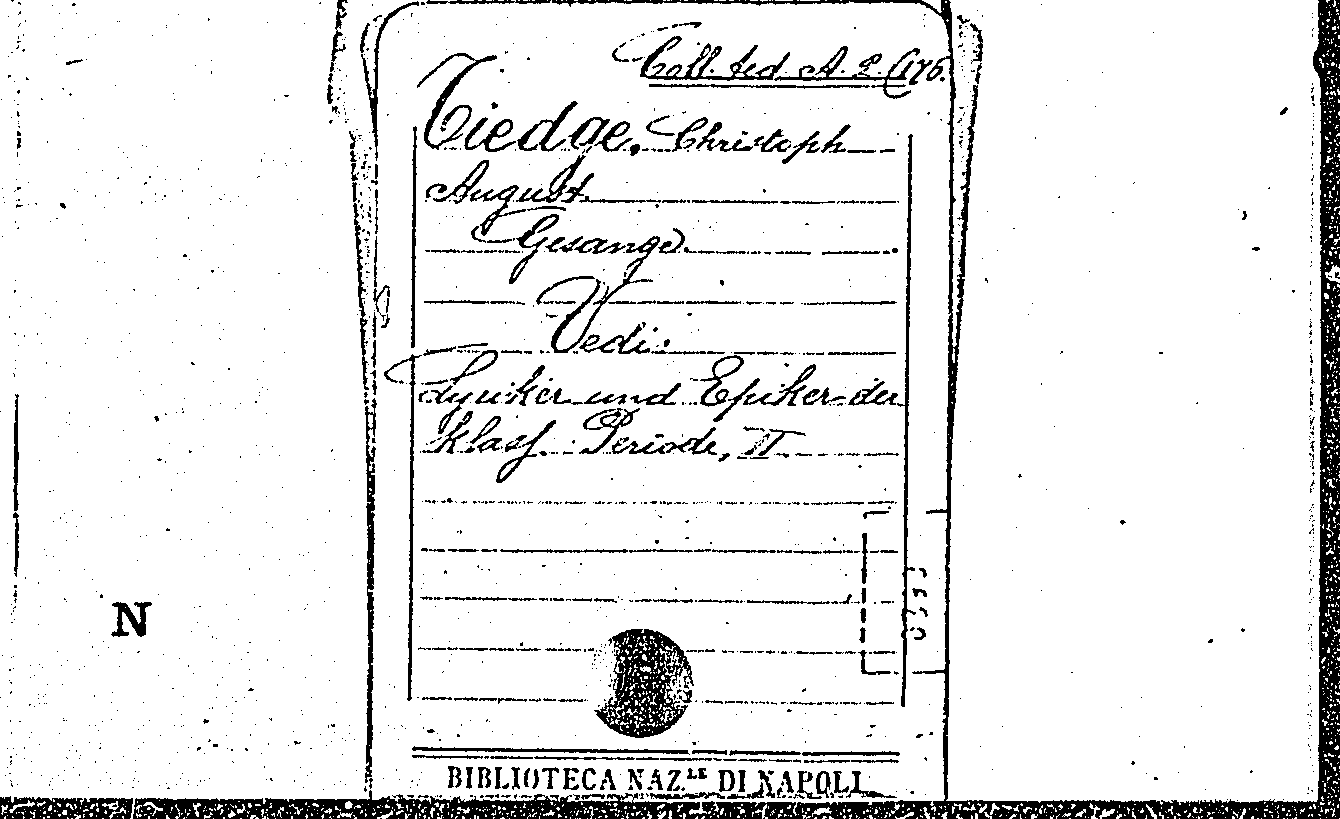 Coll. ted. A. 2. (176.
Tiedge, Christoph
August.
Gesange.
Vedi:
Lyriker und Epiker der
klass. Periode, II.
N
BIBLIOTECA NAZ.LE DI NAPOLI